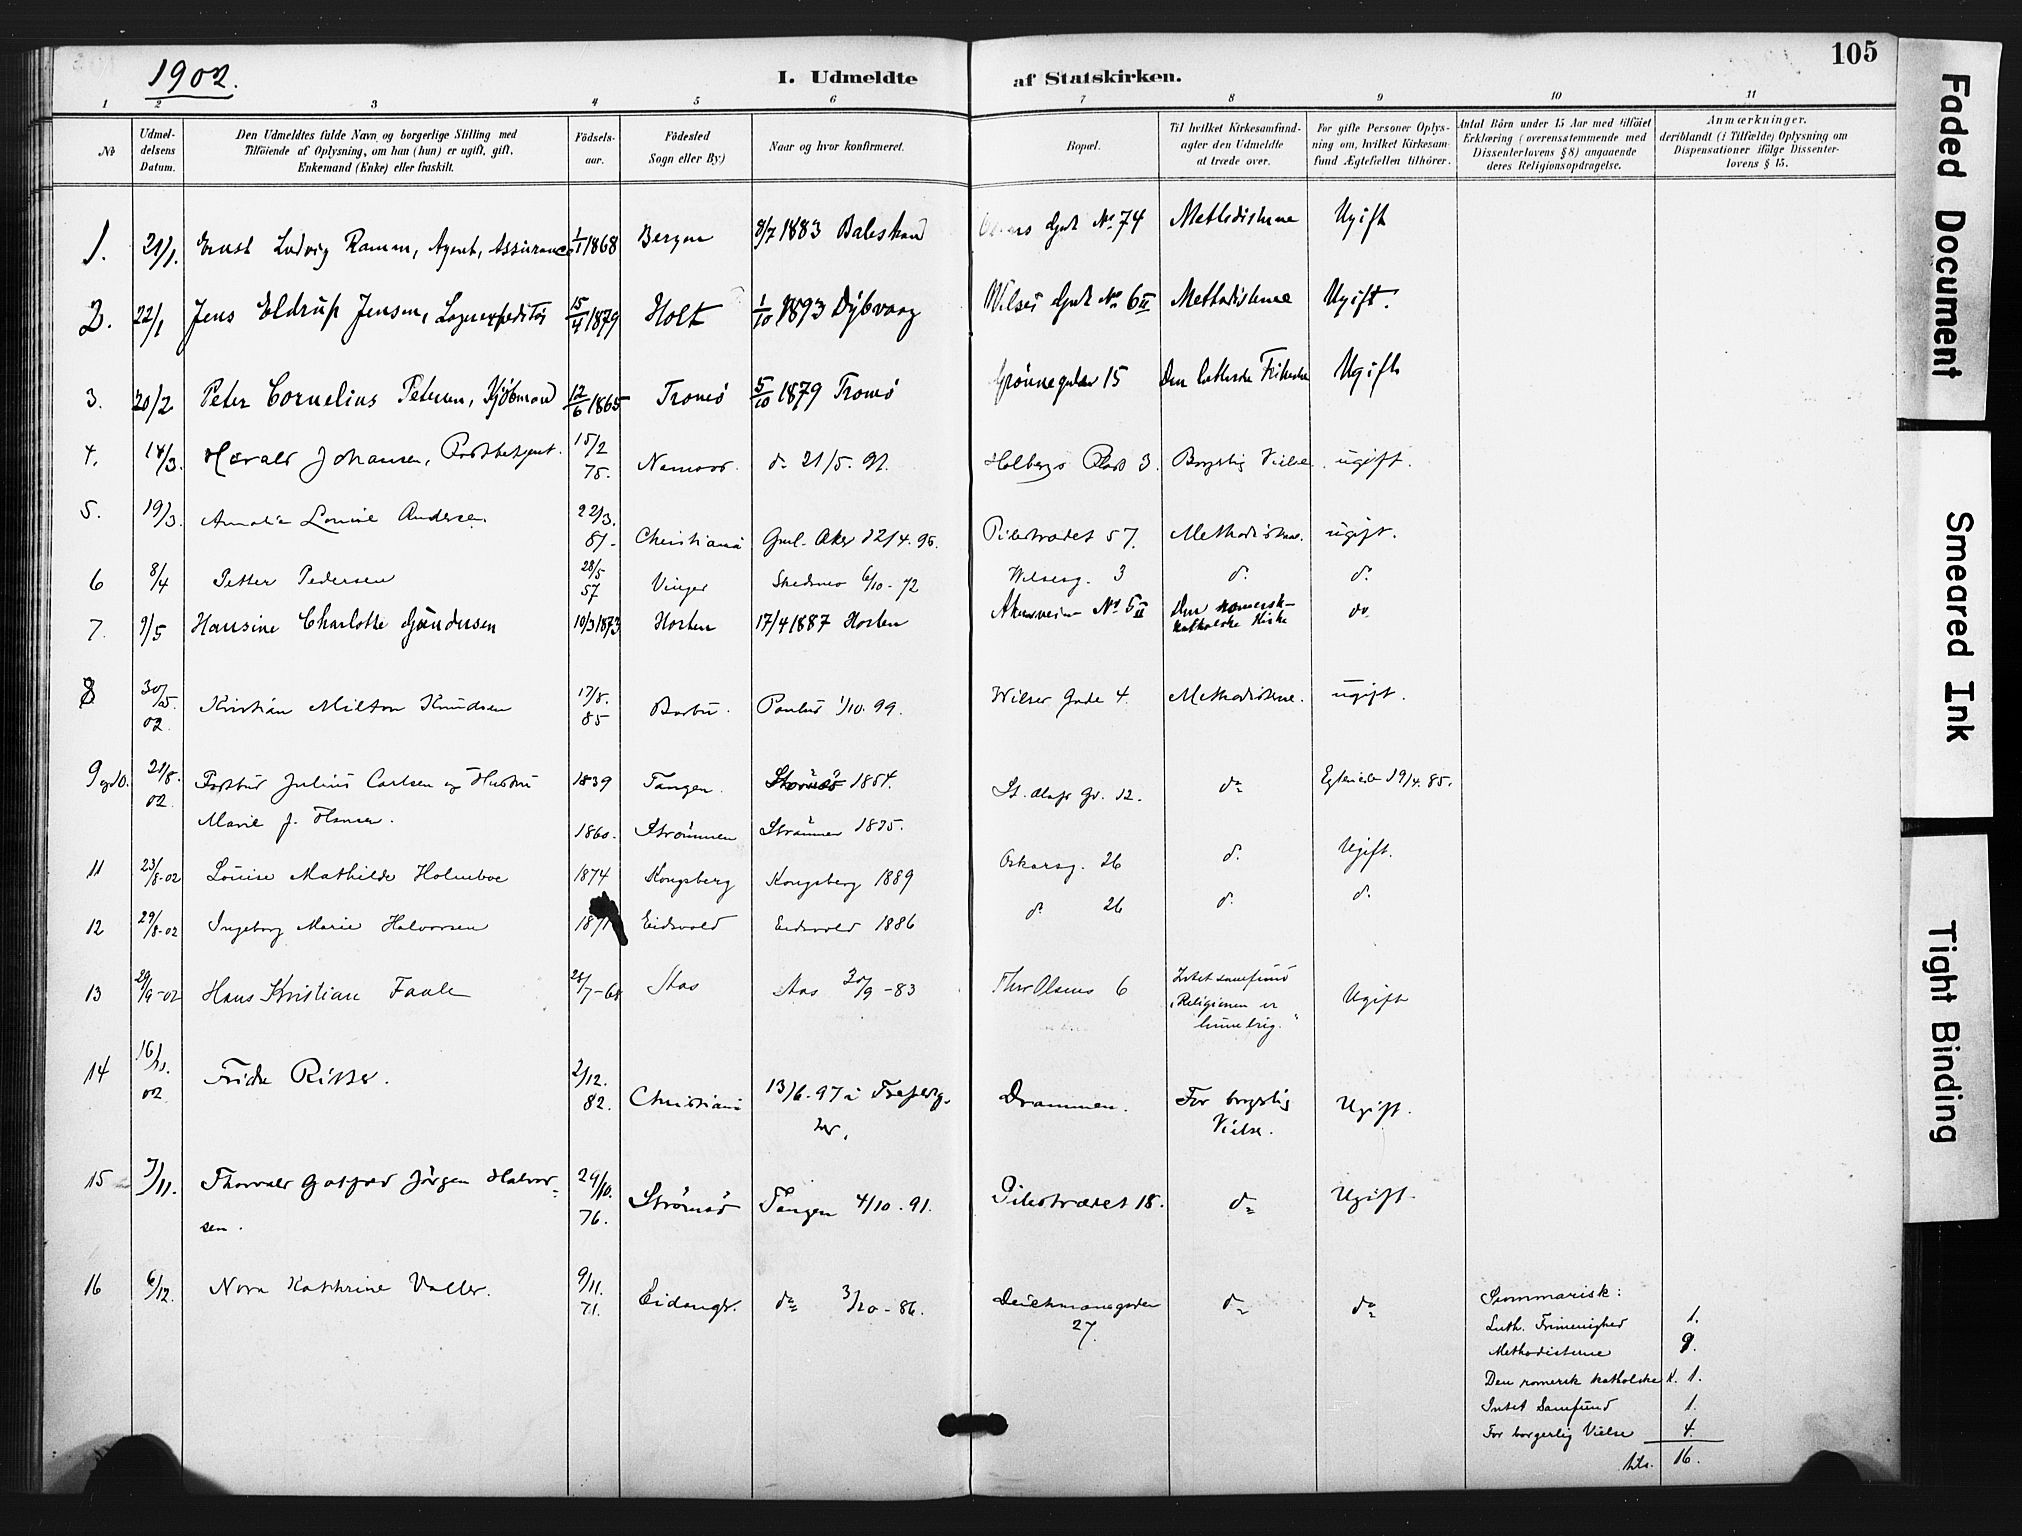 105
1902.
I. Udmeldte af Statskirken.
1 2 3 4 5 6 7 8 9 10 11
No
Udmeldelsens Datum.
Den Udmeldtes fulde Navn og borgerlige Stilling med
Tilföiende af Oplysning, om han (hun) er ugift, gift,
Enkemand (Enke) eller fraskilt.
Födselsaar.
Födested
Sogn eller By)
Naar og hvor konfirmeret.
Bopæl.
Til hvilket Kirkesamfund-
agter den Udmeldte
at træde over.
For gifte Personer Oplys-
ning om, hvilket Kirkesam-
fund Ægtefællen tilhörer.
Antal Börn under 15 Aar med tilföiet
Erklæring (overensstemmende med
Dissenterlovens § 8) angaaende
deres Religionsopdragelse.
Anmærkninger.
deriblandt (i Tilfælde) Oplysning om
Dispensationer ifölge Dissenter-
lovens § 15.
1. 21/1. Ernst Ludvig Ramm, Agent, Assurance 1/1 1868 Bergen 8/7 1883 Balestrand Gade No 74 Methodisterne Ugift
2. 22/1 Jens Eldrup Jensen, Lagerexpeditör 15/4 1879 Holt 1/10 1893 Dybvaag Wilses Gade No 6 II Methodisterne Ugift.
3. 20/2 Peter Cornelius Petersen, Kjöbmand 12/6 1865 Tromsö 5/10 1879 Tromsö Grönnegaden 15 Den lutherske Frikirke Ugift
4. 14/3. Harald Johansen, Postbetjent. 15/2 75. Namsos. do 21/5. 91. Holbergs Plads 3. Borgerlig Vielse. ugift.
5. 19/3. Amalie Louise Andersen. 22/3. 81. Christiania Gml. Aker 12/4. 96. Pilestrædet 57. Methodisterne. ugift.
6 8/4 Petter Pedersen 28/5 57 Vinger Skedsmo 6/10 - 72 Wilsesg. 3 do. do.
7. 9/5 Hansine Charlotte Gundersen 10/3 1873 Horten 17/4 1887 Horten Akersveien No 5 II Den romersk-
katholske Kirke do
8 30/5. 02. Kristian Milton Knudsen 17/8. 85 Barbu. Paulus 1/10. 99. Wilses Gade 4. Methodisterne. ugift.
9 og 10. 21/8. 02. Postbud Julius Carlsen og Hustru 1839 Tangen. Strömsö 1854. St. Olafs Gd. 12. do Egteviede 19/4. 85.
Marie J. Hansen. 1860. Strömmen Strömmen 1875.
11 23/8-02 Louise Mathilde Holmboe 1874 Kongsberg Kongsberg 1889 Oskarsg. 26 do. Ugift.
12 29/8-02 Ingeborg Marie Halvorsen 1871 Eidsvold Eidsvold 1886 do. 26 do. do.
13 29/9-02 Hans Kristian 28/7-68 Aas Aas 30/9 - 83 Thv. Olsens 6 Intet samfund
„Religionen er
humbug." Ugift
14 16/11. 02 Frida Ritter. 2/12. 82. Christiania 13/6. 97 i Trefoldig.
Drammen. For borgerlig
Vielse. Ugift.
15 7/11. Thorvald Gotfred Jörgen Halvor-
sen. 29/10. 76. Strömsö Tangen 4/10. 91. Pilestrædet 18. do Ugift.
16 6/12. Nora Kathrine Valler. 9/11. 71. Eidanger. do 3/10 - 86. Deichmannsgaden
27. do do
Summarisk:
Luth. Frimenighed 1.
Methodisterne 9.
Den romersk katholske K. 1.
Intet Samfund 1.
For borgerlig Vielse 4.
tils. 16.
Faded Document
Smeared Ink
Tight Binding